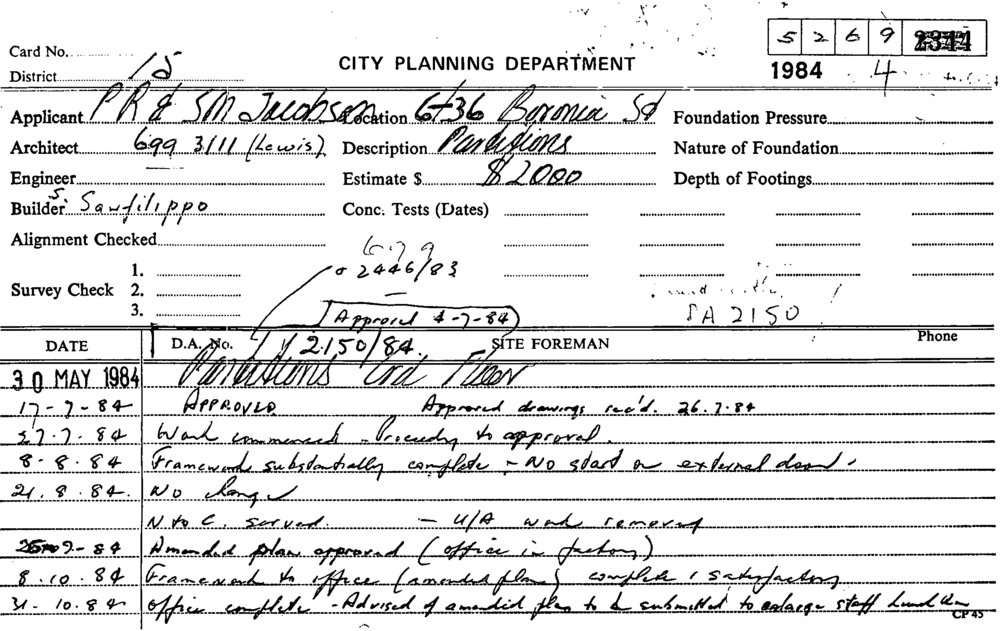 5 2 6 9 2344
Card No.
District 15 CITY PLANNING DEPARTMENT 1984 4
Applicant P R & SM Jacobson Location 6+36 Boronia St Foundation Pressure
Architect 699 3111 (Lewis) Description Partitions Nature of Foundation
Engineer Estimate $ $2000 Depth of Footings
Builder S. Sanfilippo Conc. Tests (Dates)
Alignment Checked 679
1. 2446/83
Survey Check 2.
3. Approved 4-7-84 DA 2150
DATE D.A. No. 2150/84. SITE FOREMAN Phone
30 MAY 1984 Partitions Floor
17-7-84 APPROVED Approved drawings rec'd. 26.7.84
27.7.84 Work commenced - Proceeding to approval.
8-8.84 Framework substantially complete - No start on external door.
21.8.84. No change
N to C. served. - U/A work removed
9-84 Amended plan approved (office in factory)
8.10.84 Framework to office (amended plan) complete & satisfactory
31-10.84 Office complete - Advised of amended plan to be submitted to enlarge staff lunch
CP 45